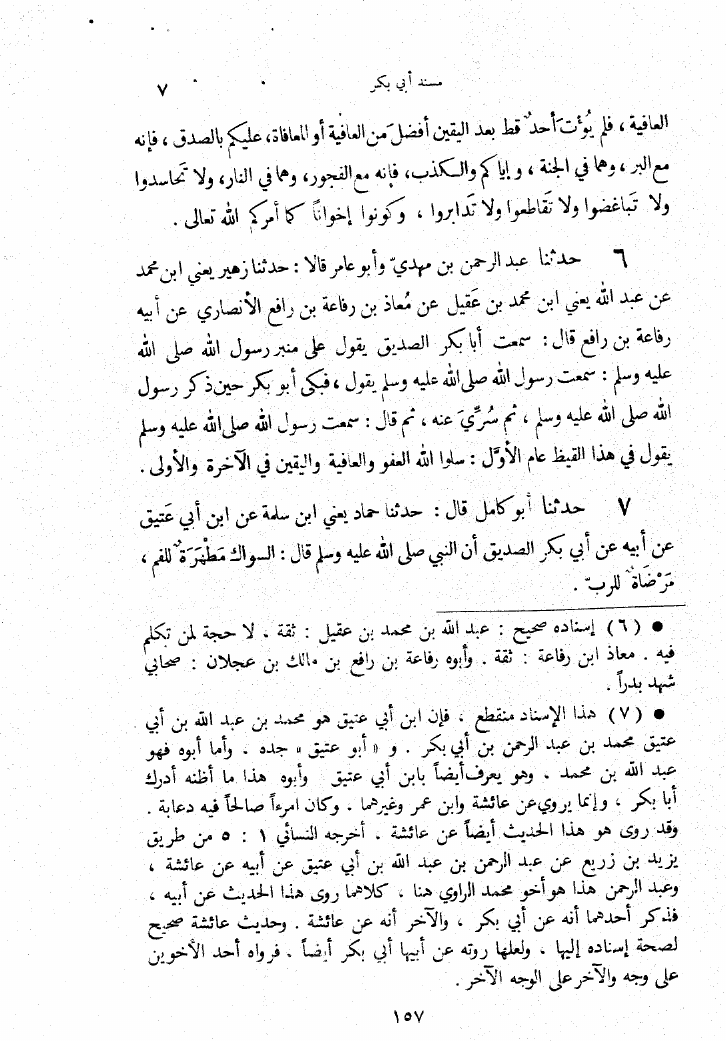 مسند أبي بكر ٧
العافية ، فلم يُؤْتَ أحدٌ قط بعد اليقين أفضلَ من العافية أو المعافاة، عليكم بالصدق ، فإنه
مع البر ، وهما في الجنة ، وإياكم والكذب، فإنه مع الفجور، وهما في النار، ولا تَحاسدوا
ولا تَباغضوا ولا تَقاطعوا ولا تَدابروا ، وكونوا إخواناً كما أمركم الله تعالى .
٦ حدثنا عبد الرحمن بن مهديّ وأبو عامر قالا : حدثنا زهير يعني ابن محمد
عن عبد الله يعني ابن محمد بن عَقيل عن مُعاذ بن رفاعة بن رافع الأنصاري عن أبيه
رفاعة بن رافع قال : سمعت أبا بكر الصديق يقول على منبر رسول الله صلى الله
عليه وسلم : سمعت رسول الله صلى الله عليه وسلم يقول ، فبكى أبو بكر حين ذكر رسول
الله صلى الله عليه وسلم ، ثم سُرِّيَ عنه ، ثم قال : سمعت رسول الله صلى الله عليه وسلم
يقول في هذا القيظ عام الأوّل : سلوا الله العفو والعافية واليقين في الآخرة والأولى .
٧ حدثنا أبو كامل قال : حدثنا حماد يعني ابن سلمة عن ابن أبي عَتيق
عن أبيه عن أبي بكر الصديق أن النبي صلى الله عليه وسلم قال : السواك مَطْهَرَةٌ للفم ،
مَرْضَاةٌ للربّ .
● (٦) إسناده صحيح : عبد الله بن محمد بن عقيل : ثقة . لا حجة لمن تكلم
فيه . معاذ ابن رفاعة : ثقة . وأبوه رفاعة بن رافع بن مالك بن عجلان : صحابي
شهد بدراً .
● (٧) هذا الإسناد منقطع ، فإن ابن أبي عتيق هو محمد بن عبد الله بن أبي
عتيق محمد بن عبد الرحمن بن أبي بكر . و « أبو عتيق » جده . وأما أبوه فهو
عبد الله بن محمد . وهو يعرف أيضاً بابن أبي عتيق وأبوه هذا ما أظنه أدرك
أبا بكر ، وإنما يروي عن عائشة وابن عمر وغيرهما . وكان امرءاً صالحاً فيه دعابة .
وقد روى هو هذا الحديث أيضاً عن عائشة . أخرجه النسائي ١ : ٥ من طريق
يزيد بن زريع عن عبد الرحمن بن عبد الله بن أبي عتيق عن أبيه عن عائشة ،
وعبد الرحمن هذا هو أخو محمد الراوي هنا ، كلاهما روى هذا الحديث عن أبيه ،
فذكر أحدهما أنه عن أبي بكر ، والآخر أنه عن عائشة . وحديث عائشة صحيح
لصحة إسناده إليها . ولعلها روته عن أبيها أبي بكر أيضاً . فرواه أحد الأخوين
على وجه والآخر على الوجه الآخر .
١٥٧